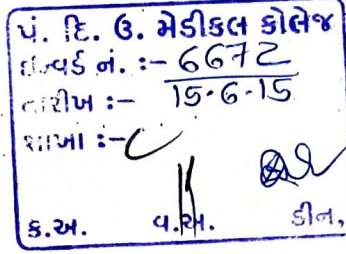 પં. દિ. ઉ. મેડીકલ કોલેજ
ઈન્વર્ડ નં. :- 6672
તારીખ :- 15-6-15
શાખા :-
ક.અ. વ.અ. ડીન,